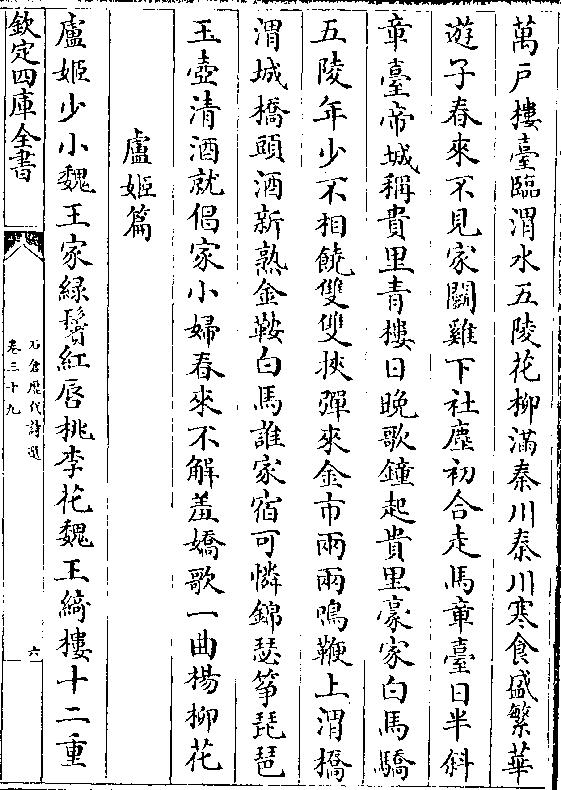 萬戸樓臺臨渭水五陵花柳滿秦川秦川寒食盛繁華
遊子春來不見家鬭雞下社塵初合走馬章臺日半斜
章臺帝城稱貴里青樓日晚歌鐘起貴里豪家白馬驕
五陵年少不相饒雙雙挾彈來金市兩兩鳴鞭上渭橋
渭城橋頭酒新熟金鞍白馬誰家宿可憐錦瑟箏琵琶
玉壺清酒就倡家小婦春來不解羞嬌歌一曲楊柳花
盧姬篇
盧姬少小魏王家緑鬢紅唇桃李花魏王綺樓十二重
欽定四庫全書
石倉歴代詩選
卷三十九
六